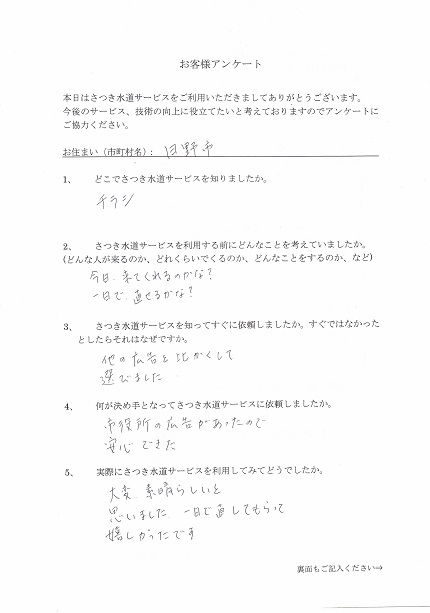 お客様アンケート
本日はさつき水道サービスをご利用いただきましてありがとうございます。
今後のサービス、技術の向上に役立てたいと考えておりますのでアンケートに
ご協力ください。
お住まい（市町村名）： 日野市
1、 どこでさつき水道サービスを知りましたか。
チラシ
2、 さつき水道サービスを利用する前にどんなことを考えていましたか。
(どんな人が来るのか、どれくらいでくるのか、どんなことをするのか、など)
今日、来てくれるのかな？
一日で、直せるかな？
3、 さつき水道サービスを知ってすぐに依頼しましたか。すぐではなかった
としたらそれはなぜですか。
他の広告と比かくして
選びました
4、 何が決め手となってさつき水道サービスに依頼しましたか。
市役所の広告があったので
安心できた
5、 実際にさつき水道サービスを利用してみてどうでしたか。
大変、素晴らしいと
思いました、一日で直してもらって
嬉しかったです
裏面もご記入ください⇒